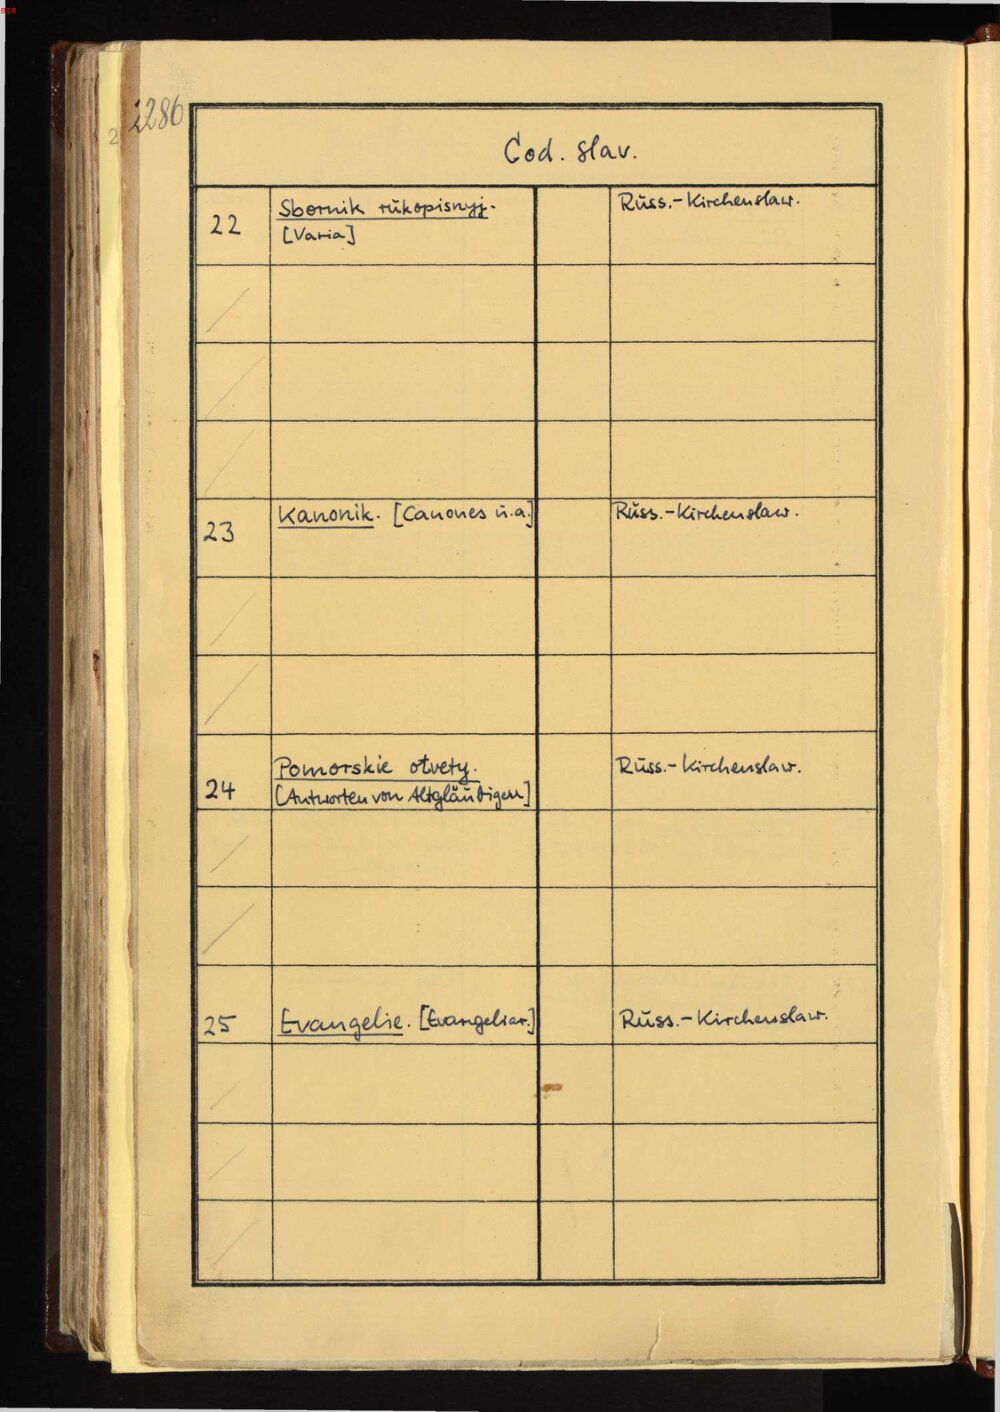 BSB
2286
2
Cod. slav.
22
Sbornik rukopisnyj.
[Varia]
Russ.-Kirchenslaw.
23
Kanonik. [Canones u.a.]
Russ.-Kirchenslaw.
24
Pomorskie otvety.
[Antworten von Altgläubigen]
Russ.-Kirchenslaw.
25
Evangelie. [Evangeliar.]
Russ.-Kirchenslaw.